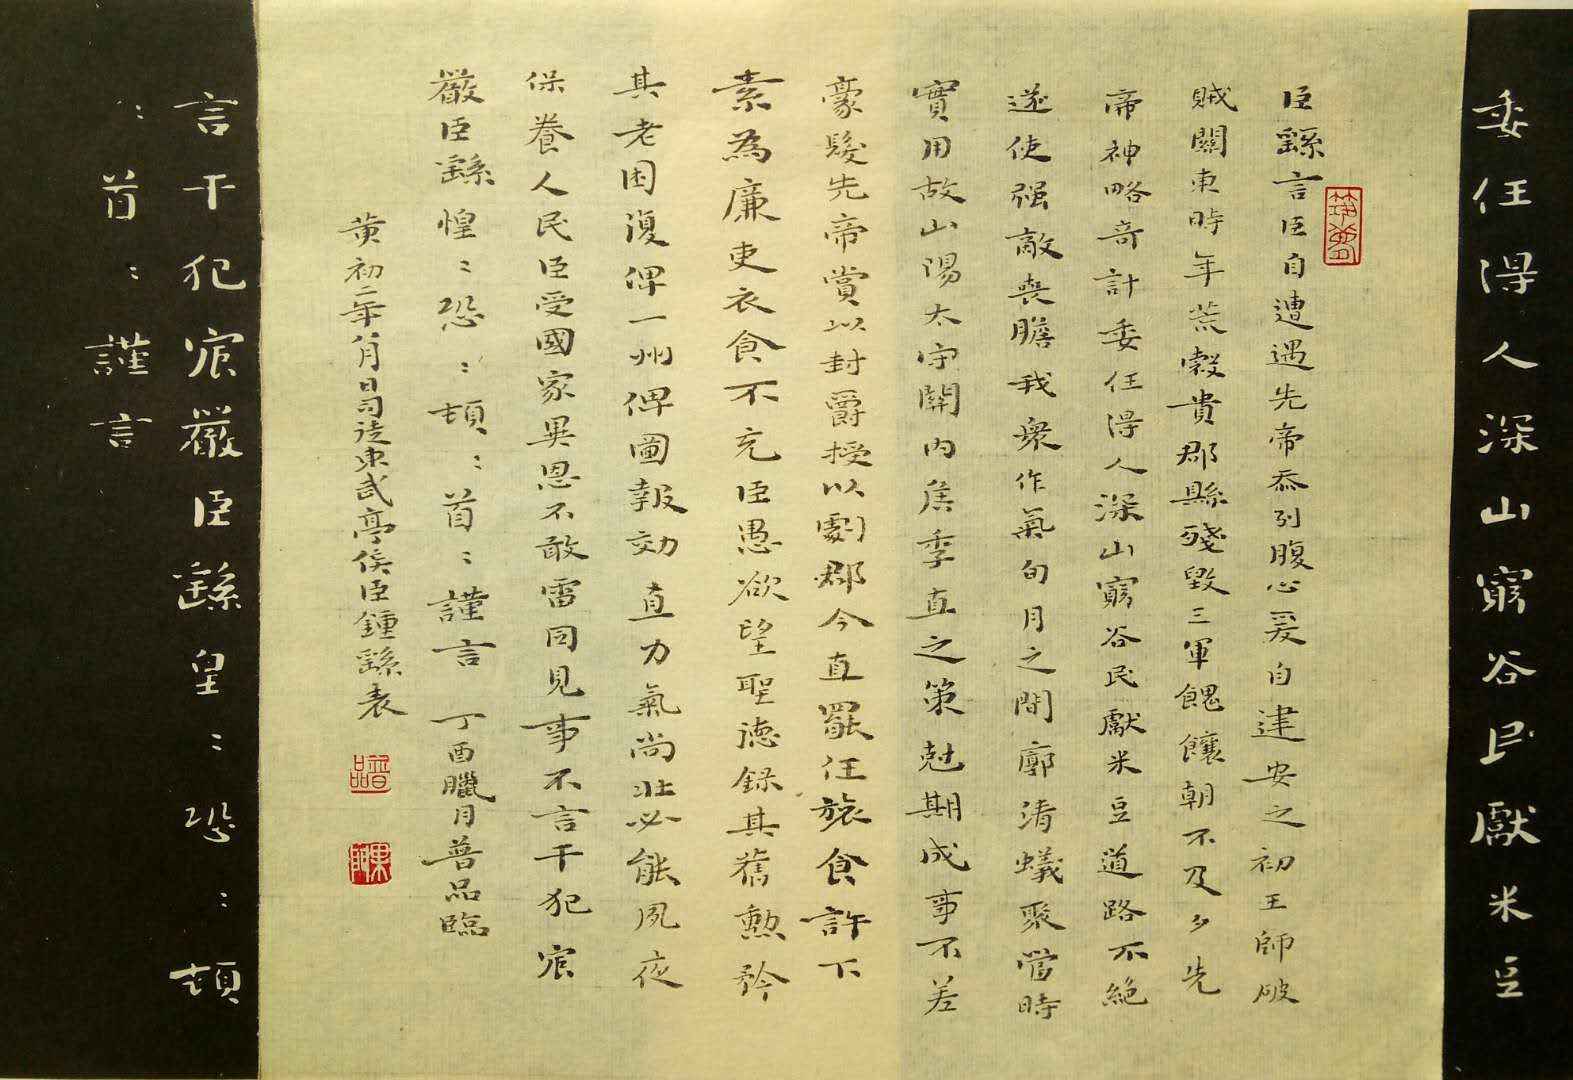 委任得人深山窮谷民獻米豆
臣繇言臣自遭遇先帝忝列腹心爰自建安之初王師破
賊關東時年荒穀貴郡縣殘毀三軍餽饟朝不及夕先
帝神略奇計委任得人深山窮谷民獻米豆道路不絶
遂使强敵喪膽我衆作氣旬月之間廓清蟻聚當時
實用故山陽太守關內矦季直之策尅期成事不差
豪髮先帝賞以封爵授以劇郡今直罷任旅食許下
素為廉吏衣食不充臣愚欲望聖德錄其舊勲矜
其老困復俾一州俾圖報効直力氣尚壯必能夙夜
保養人民臣受國家異恩不敢雷同見事不言干犯宸
嚴臣繇惶:恐:頓:首:謹言 丁酉臘月普品臨
黄初二年八月日司徒東武亭侯臣鍾繇表
普品
言干犯宸嚴臣繇皇:恐:頓
:首:謹言